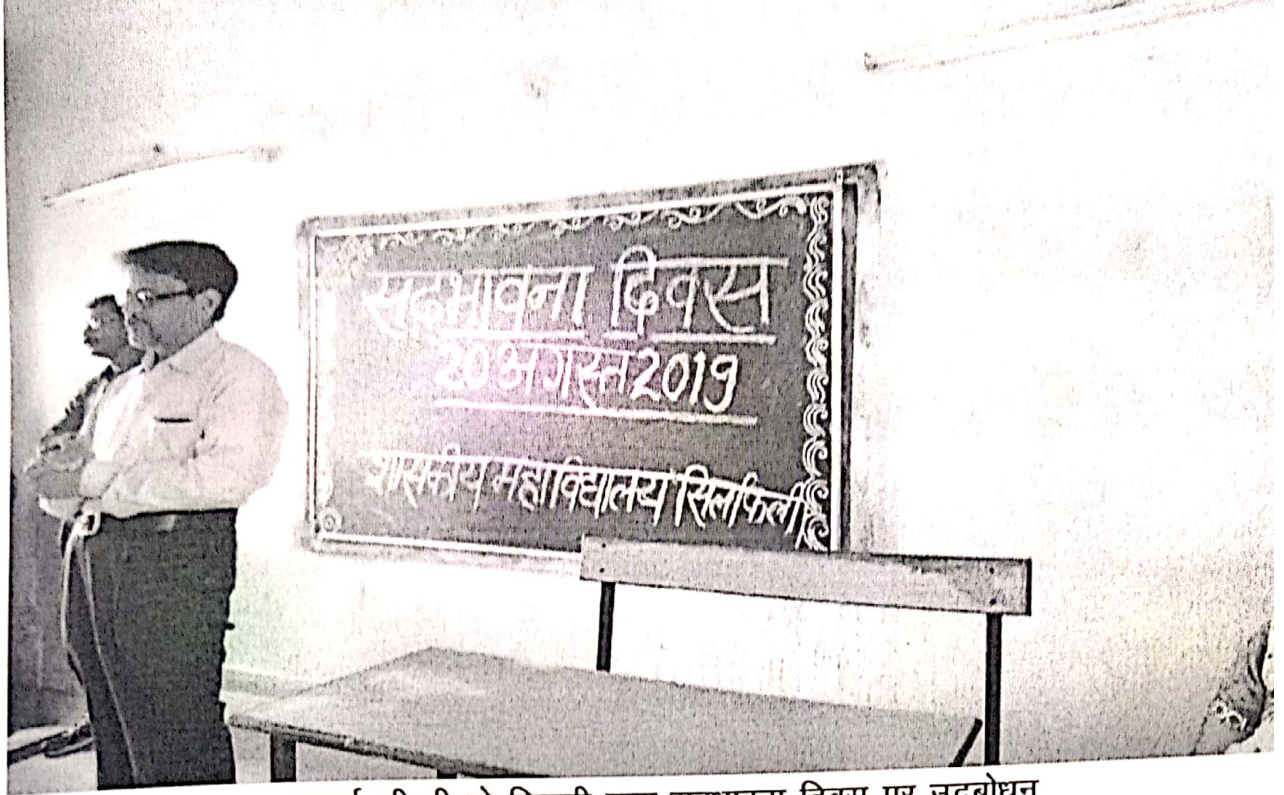 सदभावना दिवस
20 अगस्त 2019
शासकीय महाविद्यालय सिलफिली
सदभावना दिवस पर उदबोधन